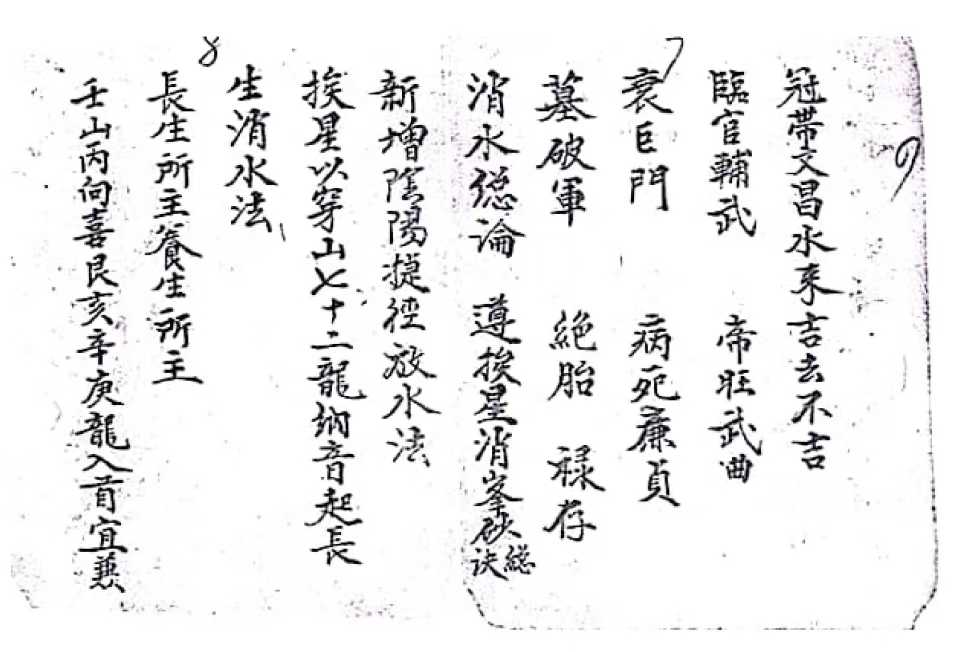 冠帶文昌水来吉去不吉
臨官輔武 帝旺武曲
衰巨門 病死廉貞
墓破軍 絕胎 祿存
消水總論 遵挨星消峯砍總訣
新增陰陽捷徑放水法
挨星以穿山七十二龍納音起長
生消水法
長生所主養生所主
壬山丙向喜艮亥辛庚龍入首宜兼